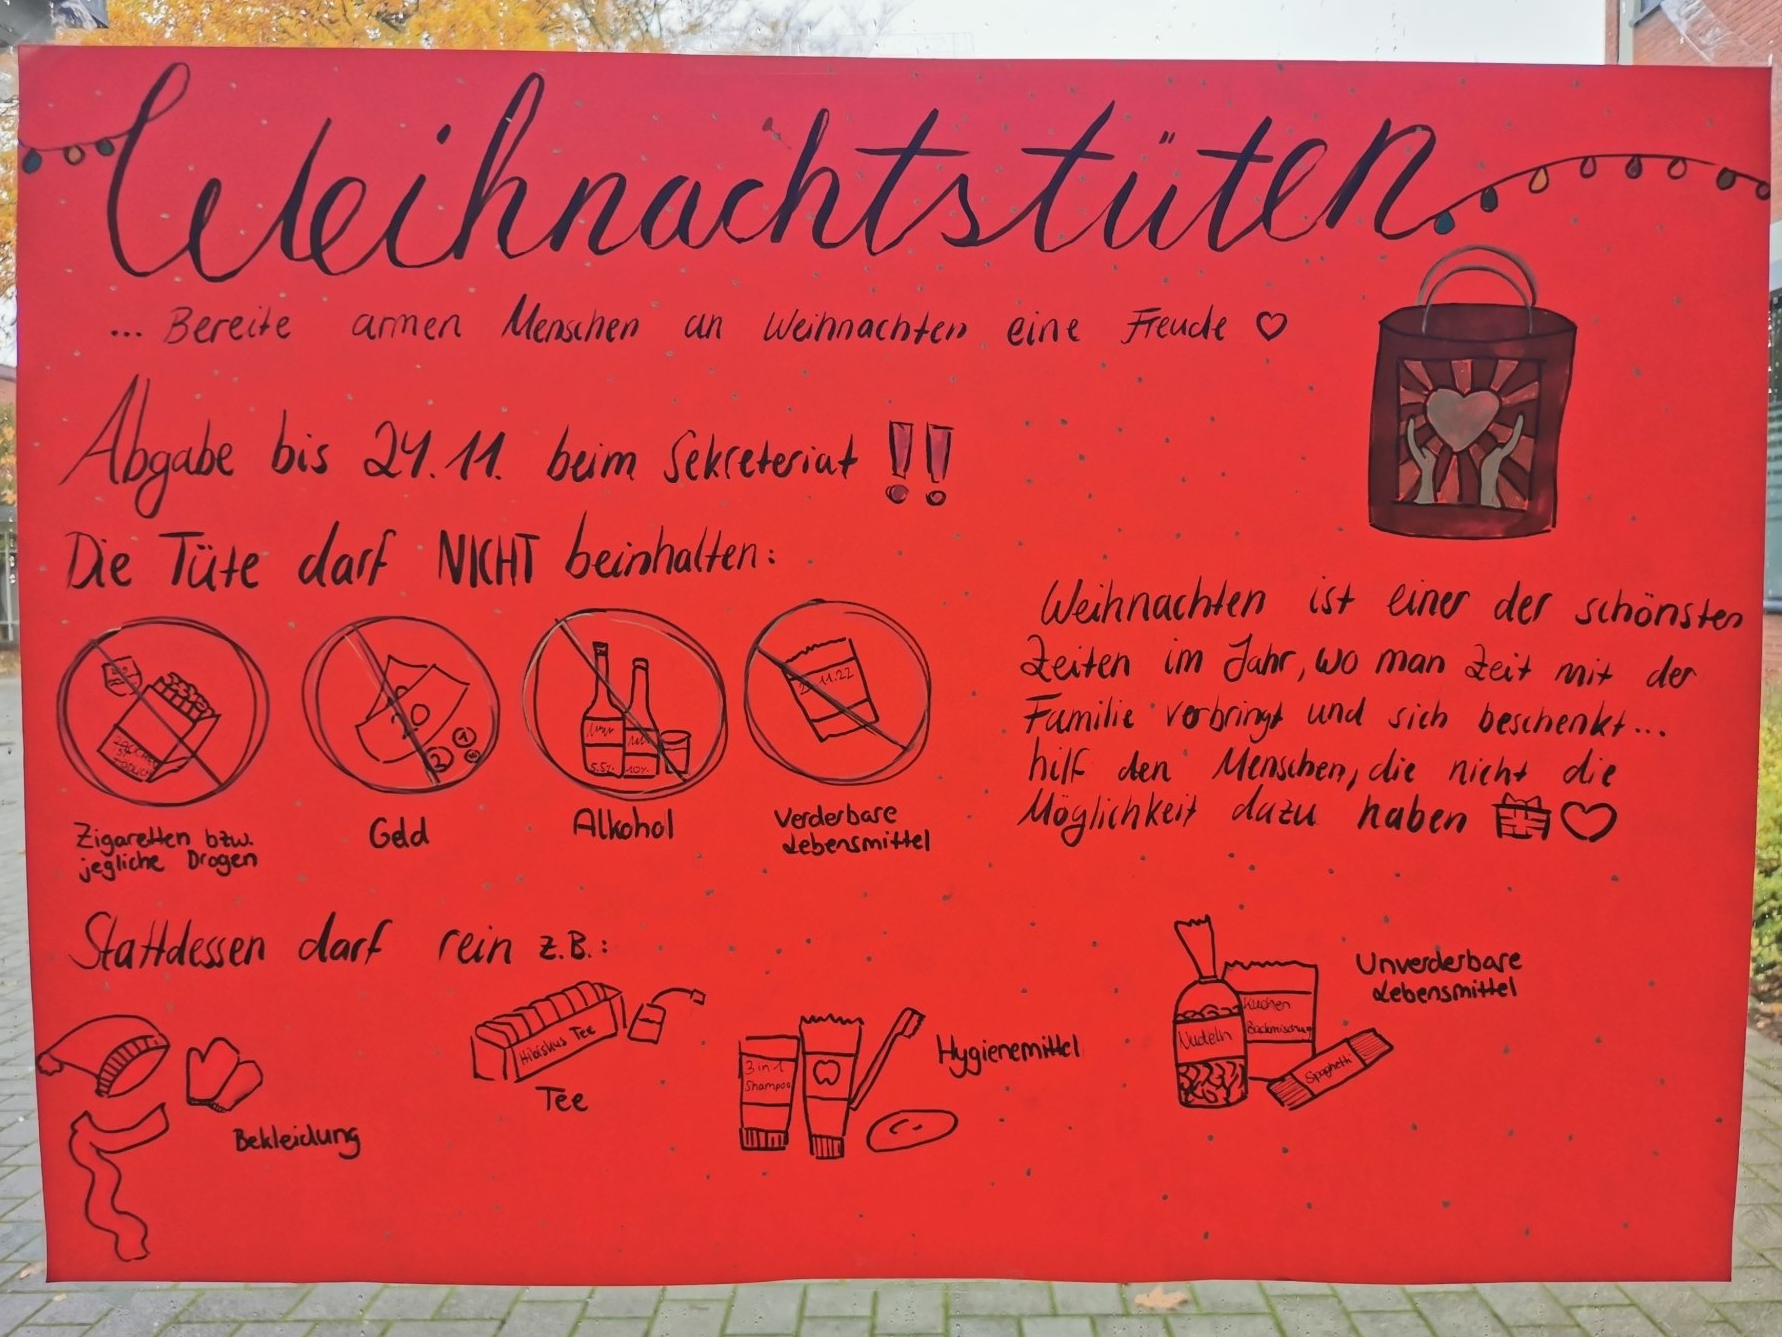 Weihnachtstüten
... Bereite armen Menschen an Weihnachten eine Freude ♡
Abgabe bis 24.11. beim Sekreteriat !!
Die Tüte darf NICHT beinhalten:
Zigaretten bzw.
jegliche Drogen
Geld
5.5%
10%
Alkohol
11.22
Verderbare
Lebensmittel
Weihnachten ist einer der schönsten
Zeiten im Jahr, wo man Zeit mit der
Familie verbringt und sich beschenkt...
hilf den Menschen, die nicht die
Möglichkeit dazu haben ♡
Stattdessen darf rein z.B.:
Bekleidung
Hibiskus Tee
Tee
3 in 1
Shampoo
Hygienemittel
Nudeln
Kuchen
Backmischung
Spaghetti
Unverderbare
Lebensmittel